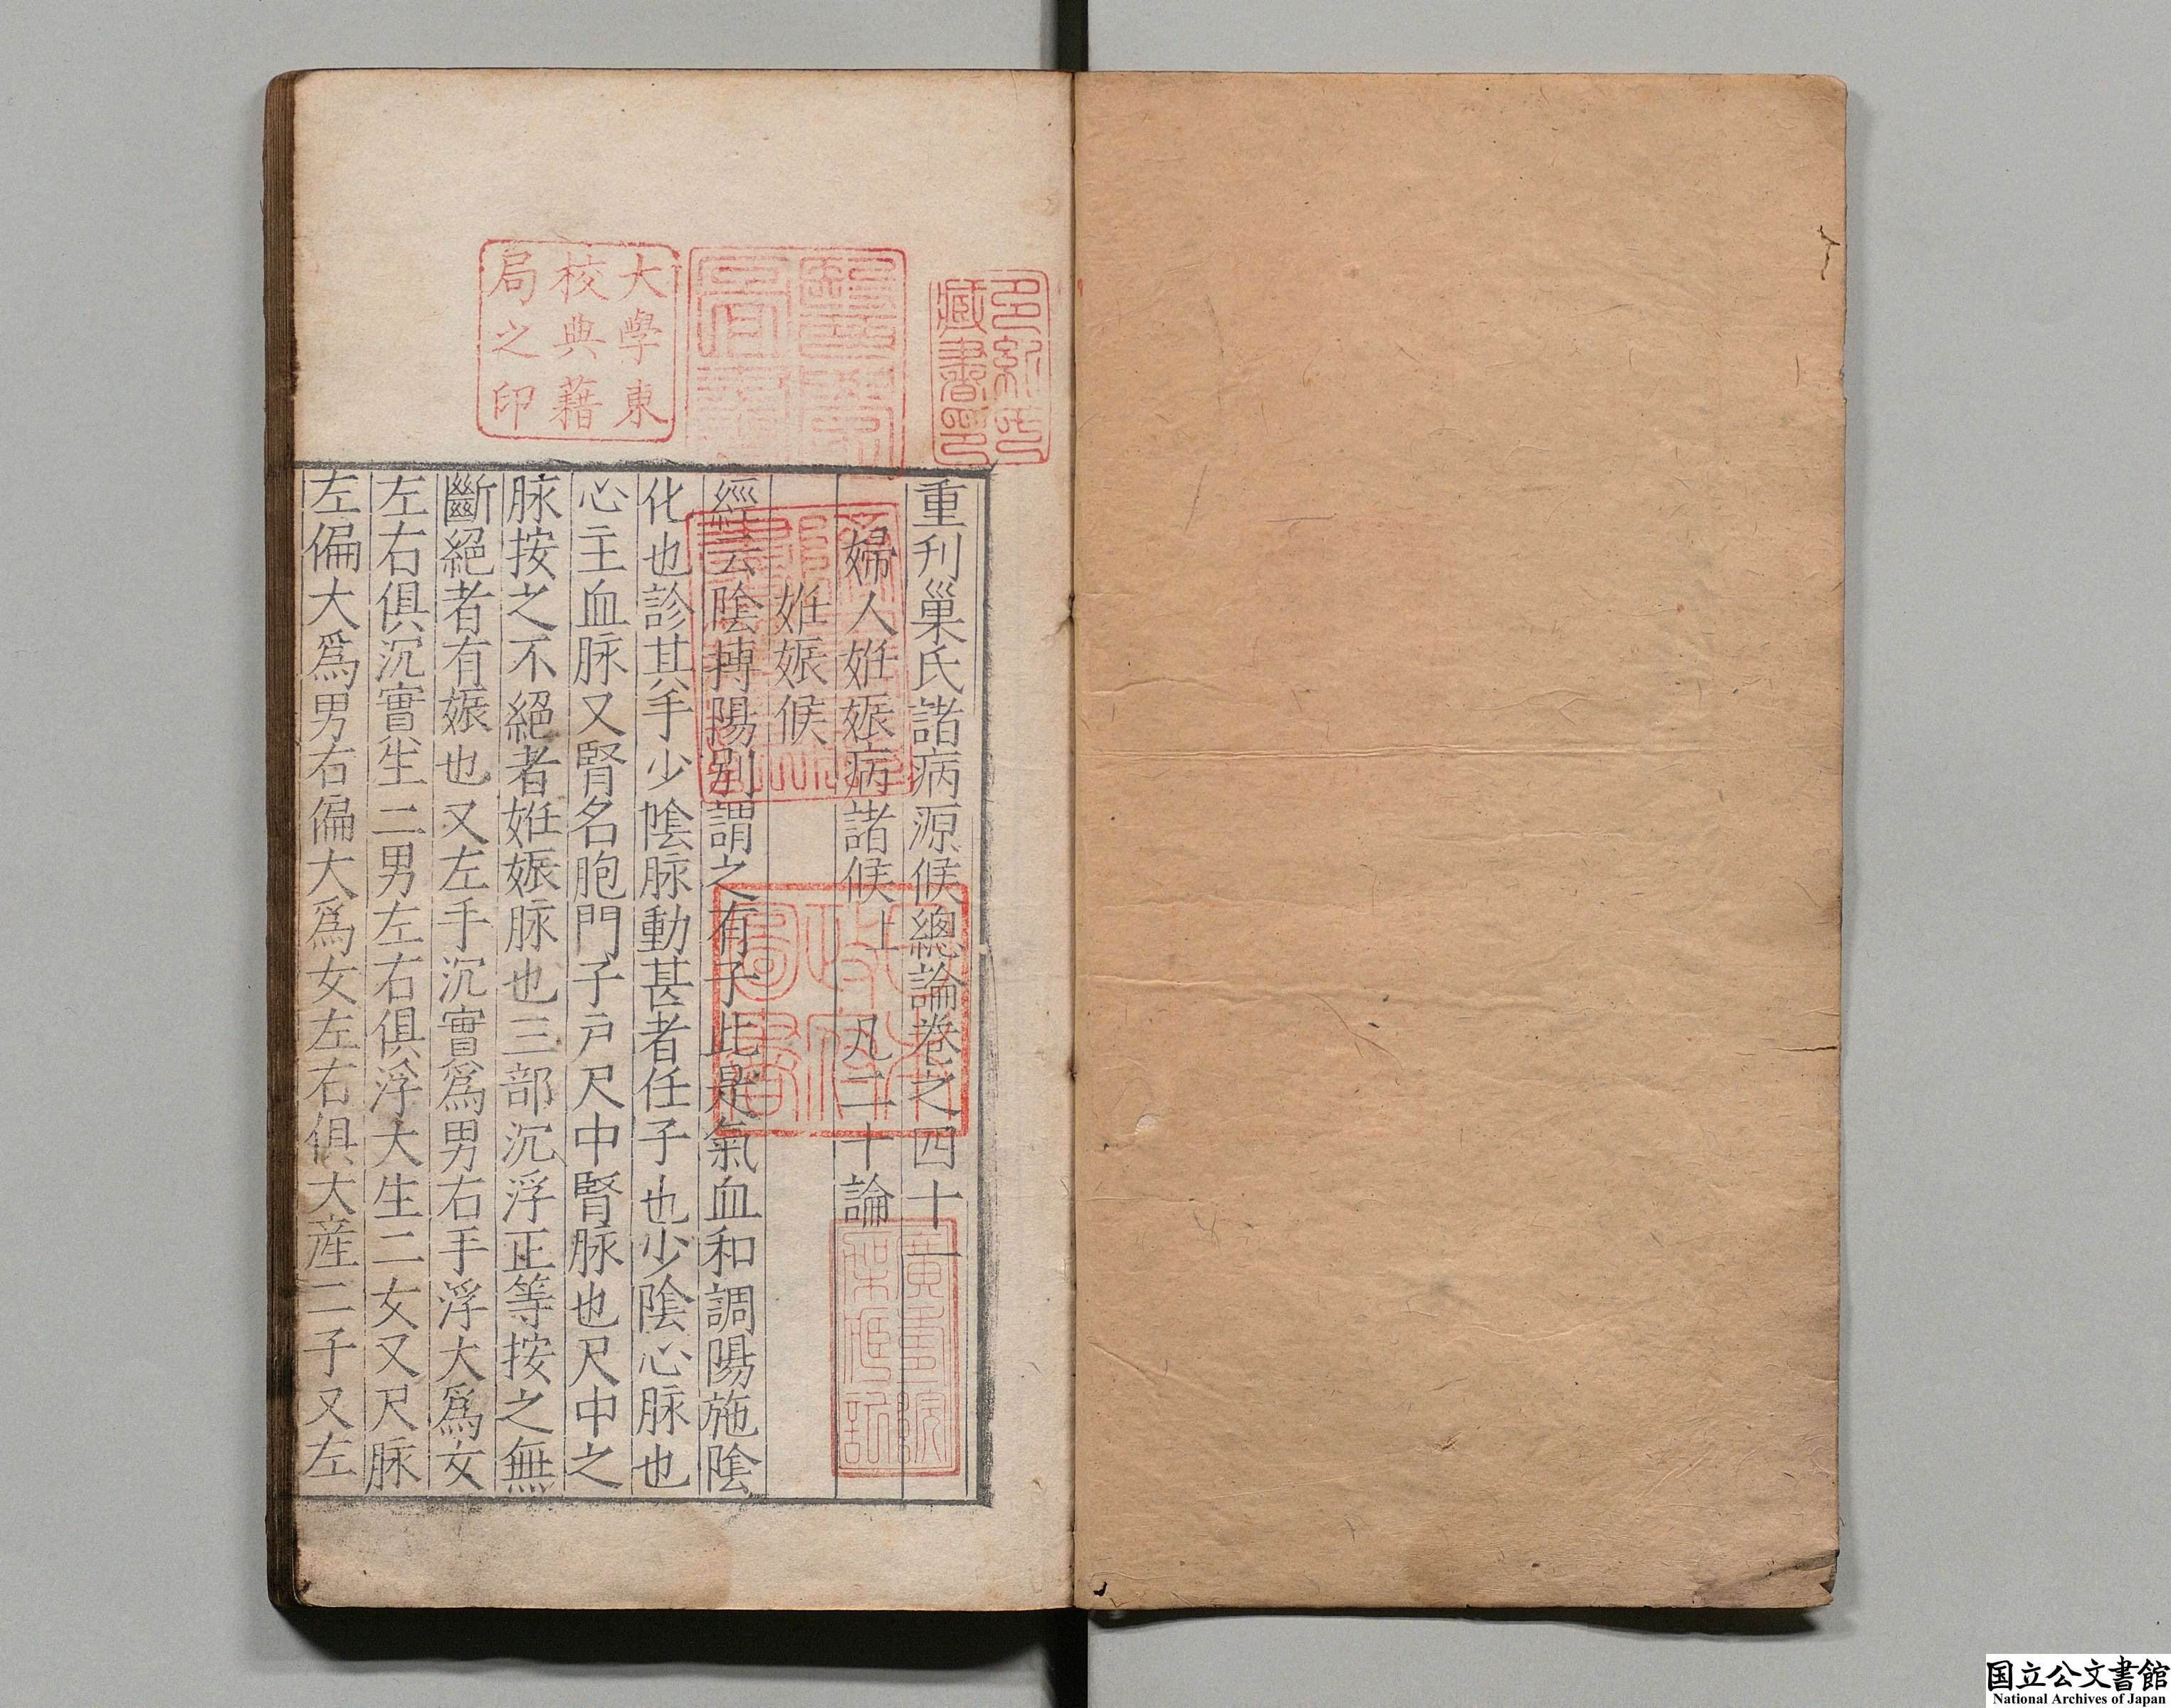 重刋巢氏諸病源候總論卷之四十一
婦人姙娠病諸候上 凡二十論
姙娠候
經云陰摶陽别謂之有子此是氣血和調陽施陰
化也診其手少陰脉動甚者任子也少陰心脉也
心主血脉又腎名胞門子戸尺中腎脉也尺中之
脉按之不絕者姙娠脉也三部沉浮正等按之無
斷絕者有娠也又左手沉實爲男右手浮大爲女
左右俱沉實生二男左右俱浮大生二女又尺脉
左偏大爲男右偏大爲女左右俱大産二子又左
多紀氏
藏書印
大學東
校典藉
局之印
国立公文書館
National Archives of Japan